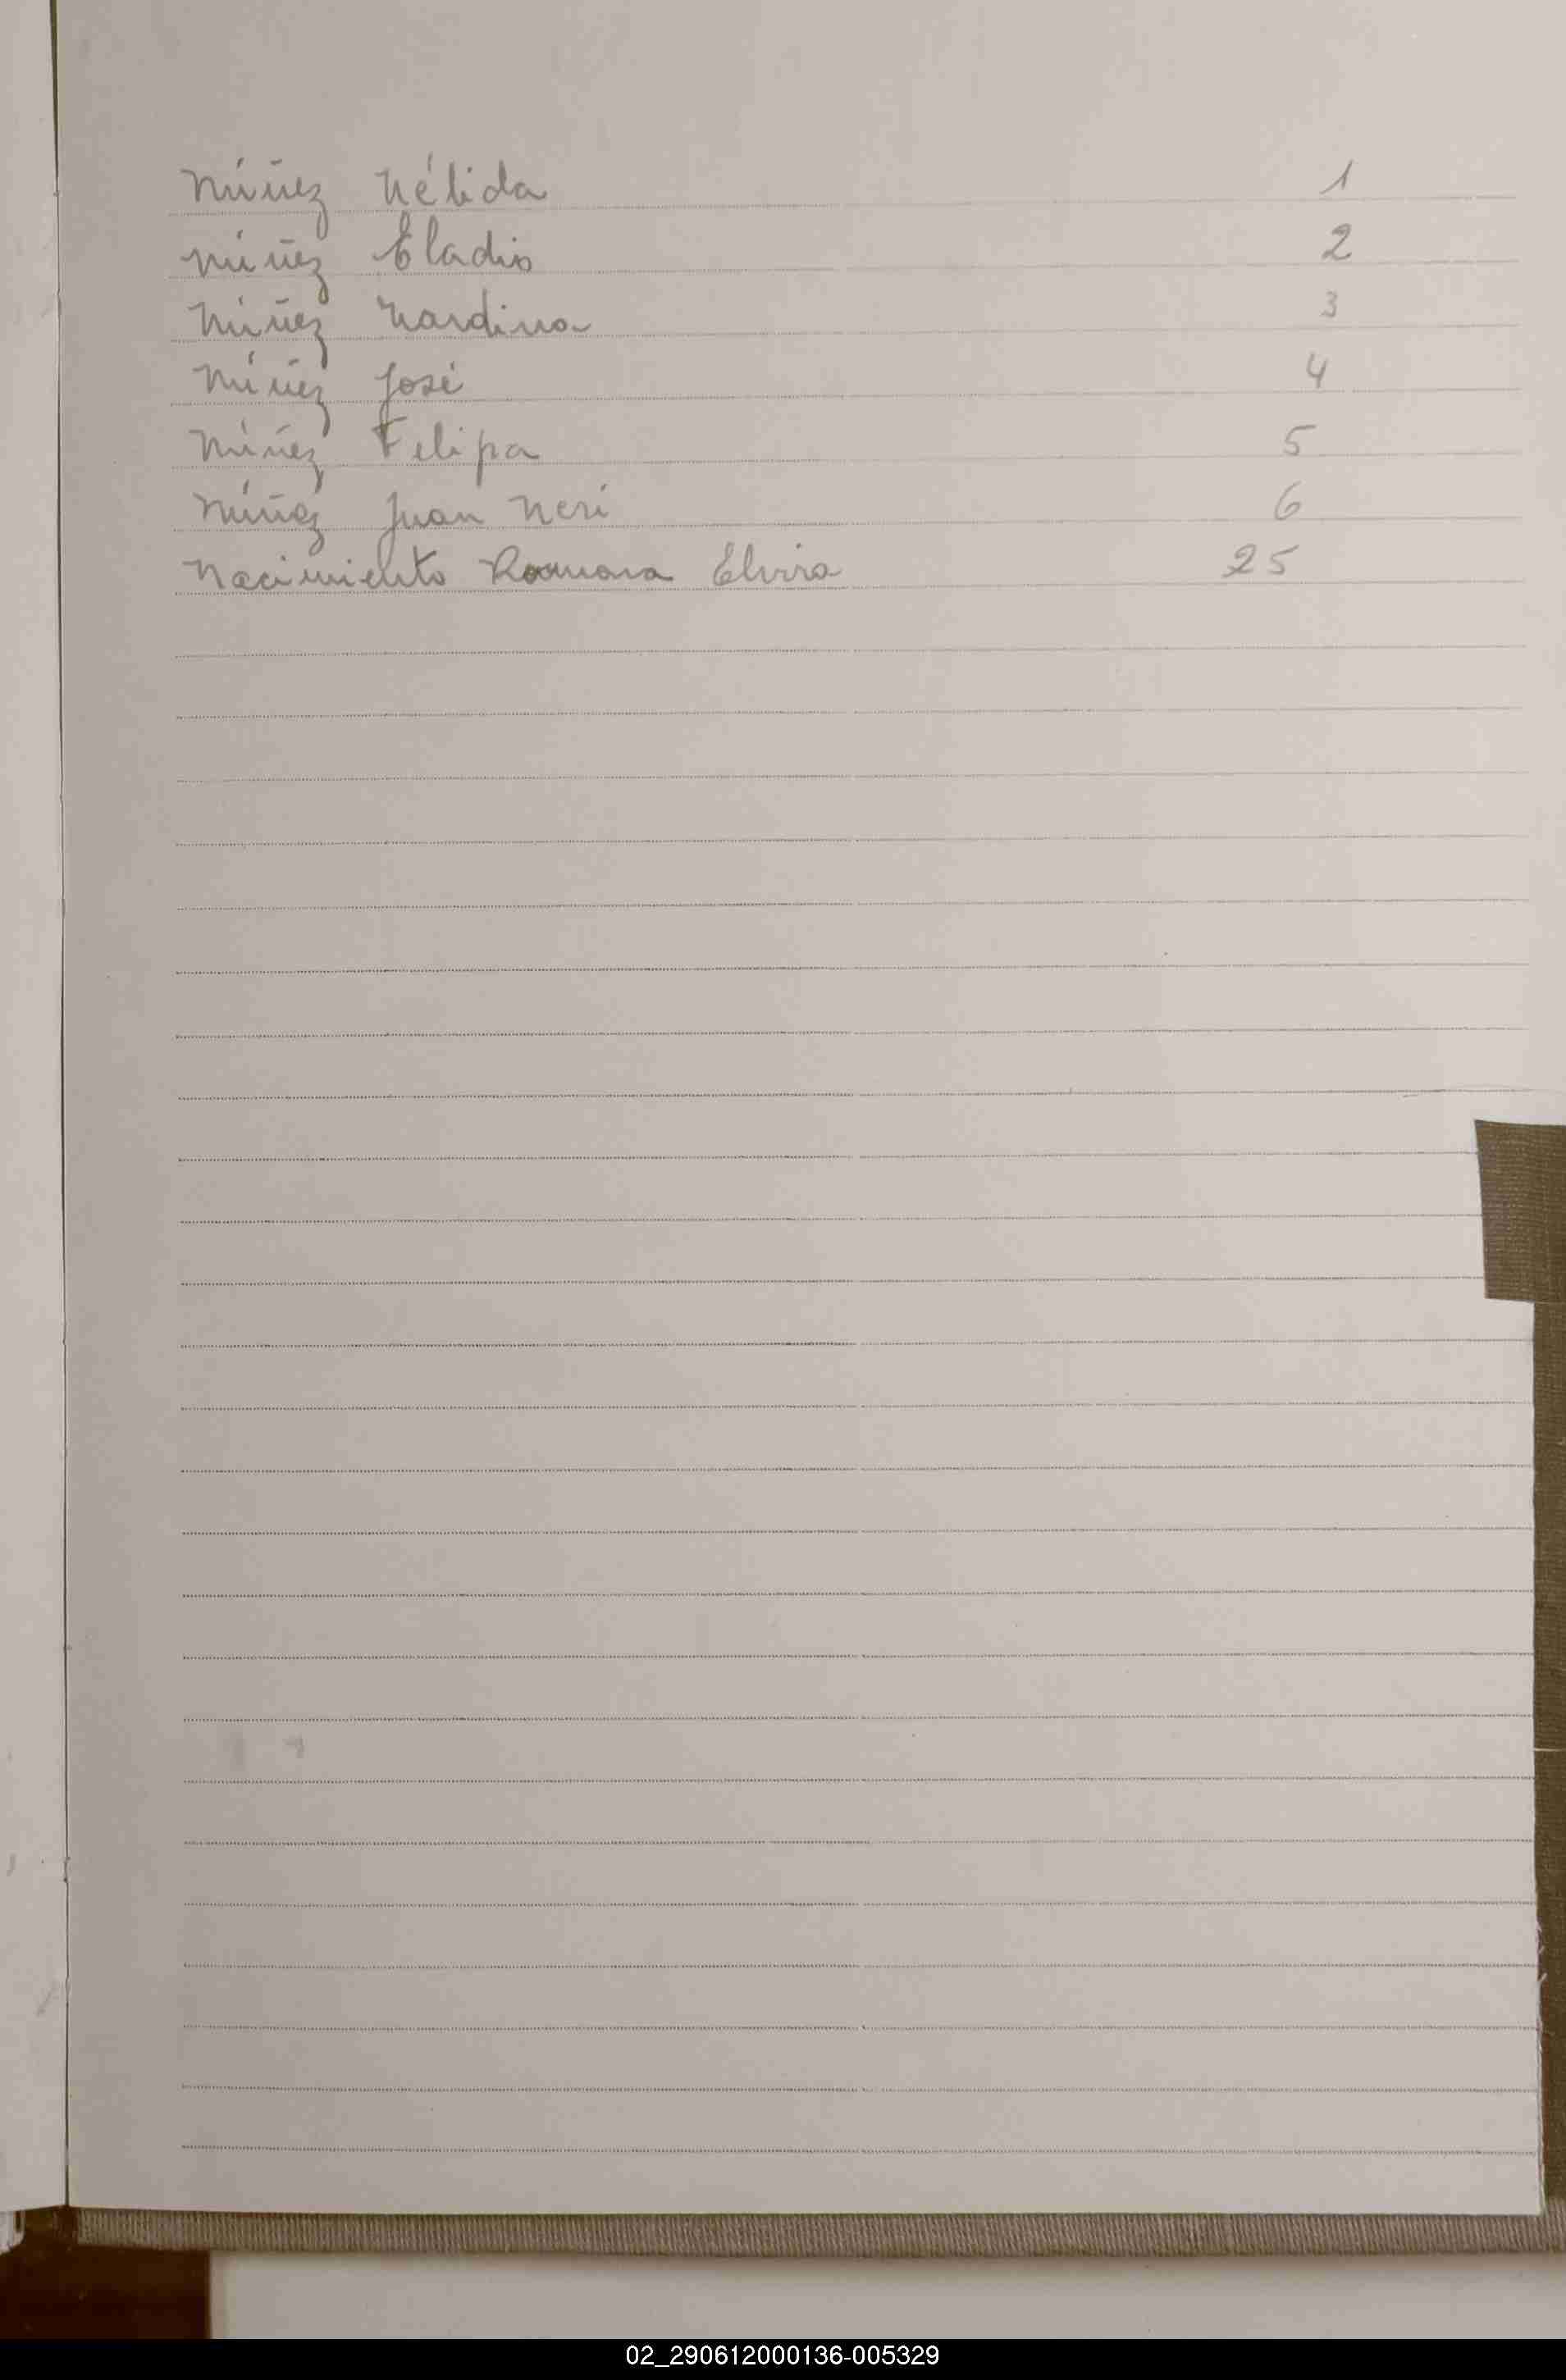 Núñez Nélida 1
Núñez Eladio 2
Núñez Nardina 3
Núñez José 4
Núñez Felipa 5
Núñez Juan Neri 6
Nacimiento Romana Elvira 25
02_290612000136-005329